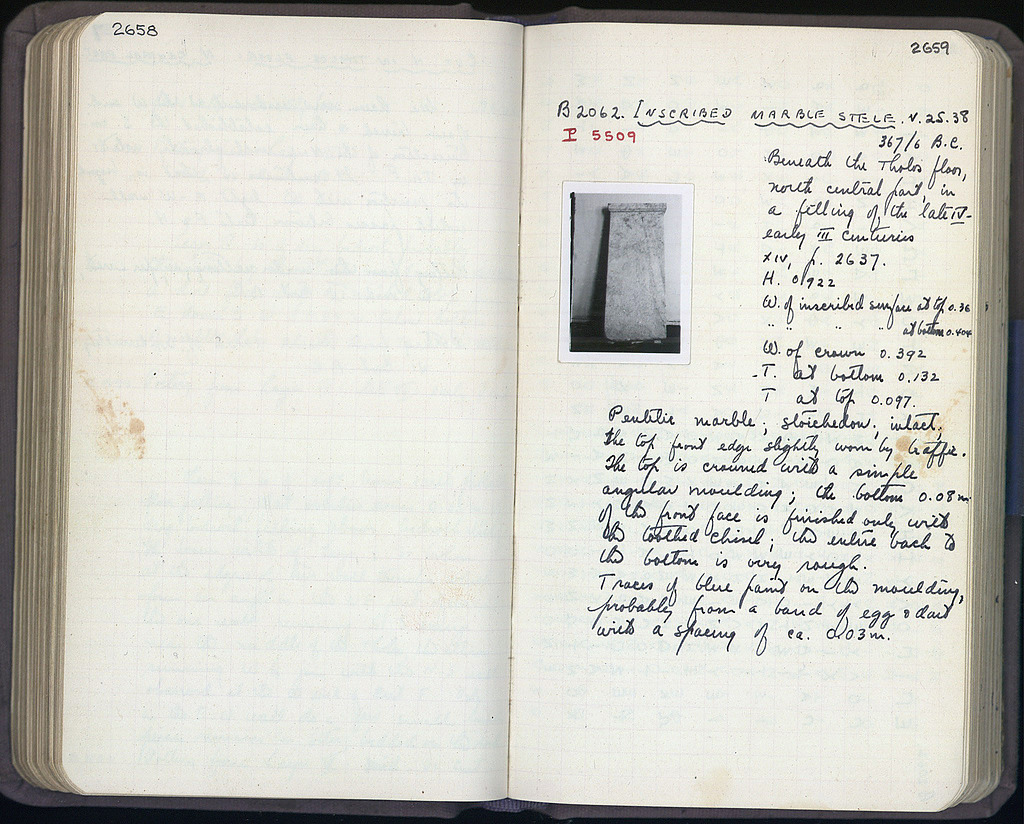 2658
2659
B 2062. INSCRIBED MARBLE STELE. V. 25. 38
I 5509
367/6 B.C.
Beneath the Tholos floor,
north central part, in
a filling of the late IV-
early III centuries
XIV, p. 2637.
H. 0.922
W. of inscribed surface at top 0.36
" " " " at bottom 0.404
W. of crown 0.392
T. at bottom 0.132
T at top 0.097.
Pentelic marble; stoichedon; intact;
the top front edge slightly worn by traffic.
The top is crowned with a simple
angular moulding; the bottom 0.08 m.
of the front face is finished only with
the toothed chisel; the entire back to
the bottom is very rough.
Traces of blue paint on the moulding,
probably from a band of egg & dart
with a spacing of ca. 0.03m.